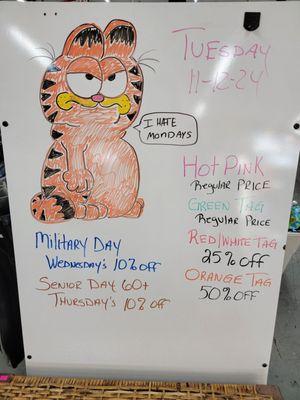 TUESDAY
11-12-24
I HATE
MONDAYS
HOT PINK
REGULAR PRICE
GREEN TAG
REGULAR PRICE
RED/WHITE TAG
25% OFF
ORANGE TAG
50% OFF
MILITARY DAY
WEDNESDAY'S 10% OFF
SENIOR DAY 60+
THURSDAY'S 10% OFF